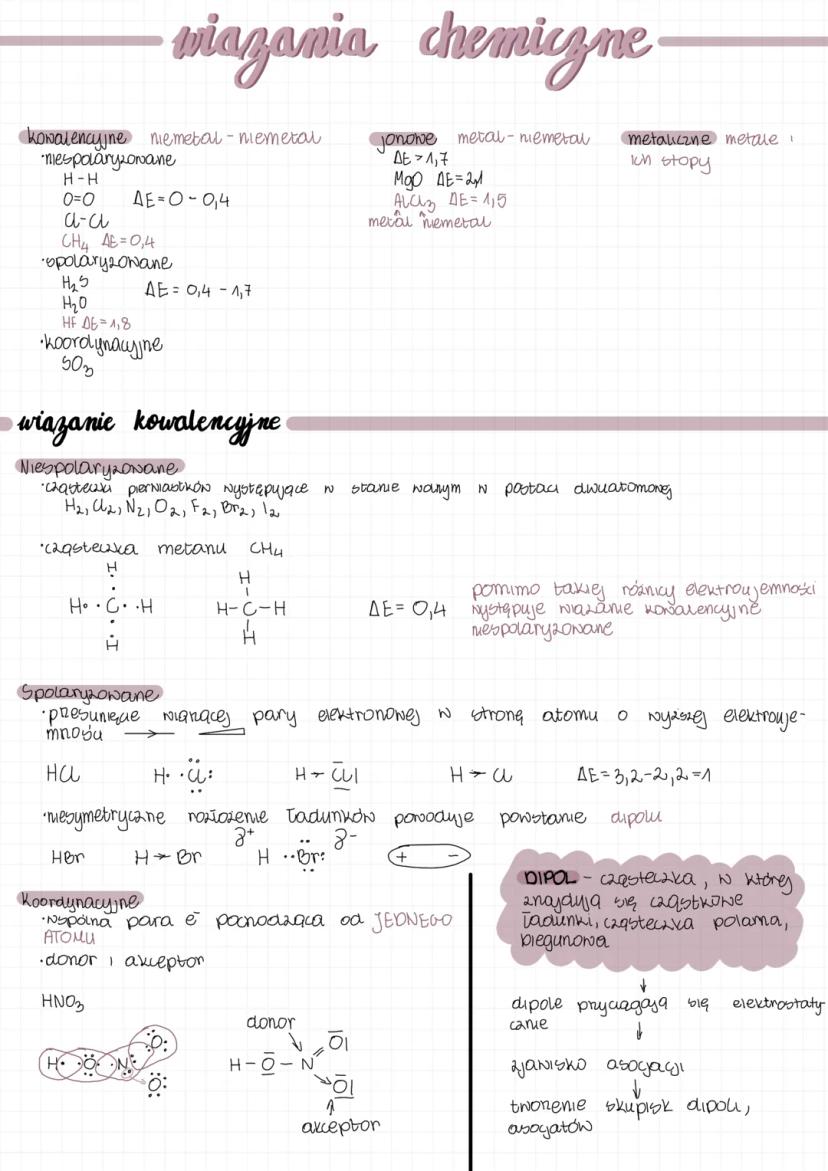 wiązania chemiczne
kowalencyjne niemetal - niemetal
•niespolaryzowane
H-H
O=O ΔE=0-0,4
Cl-Cl
CH₄ ΔE=0,4
•spolaryzowane
H₂S
H₂O ΔE = 0,4 - 1,7
HF ΔE=1,8
•koordynacyjne
SO₃
jonowe metal-niemetal
ΔE>1,7
MgO ΔE=2,1
AlCl₃ ΔE=1,5
metal niemetal
metaliczne metale i
ich stopy
wiązanie kowalencyjne
Niespolaryzowane
•cząsteczki pierwiastków występujące w stanie wolnym w postaci dwuatomowej
H₂, Cl₂, N₂, O₂, F₂, Br₂, I₂
•cząsteczka metanu CH₄
H
H C H
H
H
H-C-H
H
ΔE=0,4
pomimo takiej różnicy elektroujemności
występuje wiązanie kowalencyjne
niespolaryzowane
Spolaryzowane
•przesunięcie wiążącej pary elektronowej w stronę atomu o wyższej elektrouje-
mności
HCl H· ·Cl: H→Cl| H→Cl ΔE=3,2-2,2=1
•niesymetryczne rozłożenie ładunków powoduje powstanie dipolu
δ+ δ-
HBr H→Br H ··Br: + -
Koordynacyjne
•wspólna para e⁻ pochodząca od JEDNEGO
ATOMU
•donor i akceptor
HNO₃
H O N O
O
donor
H-O-N O|
O|
akceptor
DIPOL - cząsteczka, w której
znajdują się cząstkowe
ładunki, cząsteczka polarna,
biegunowa
↓
dipole przyciągają się elektrostaty
cznie
↓
zjawisko asocjacji
↓
tworzenie skupisk dipoli,
asocjatów